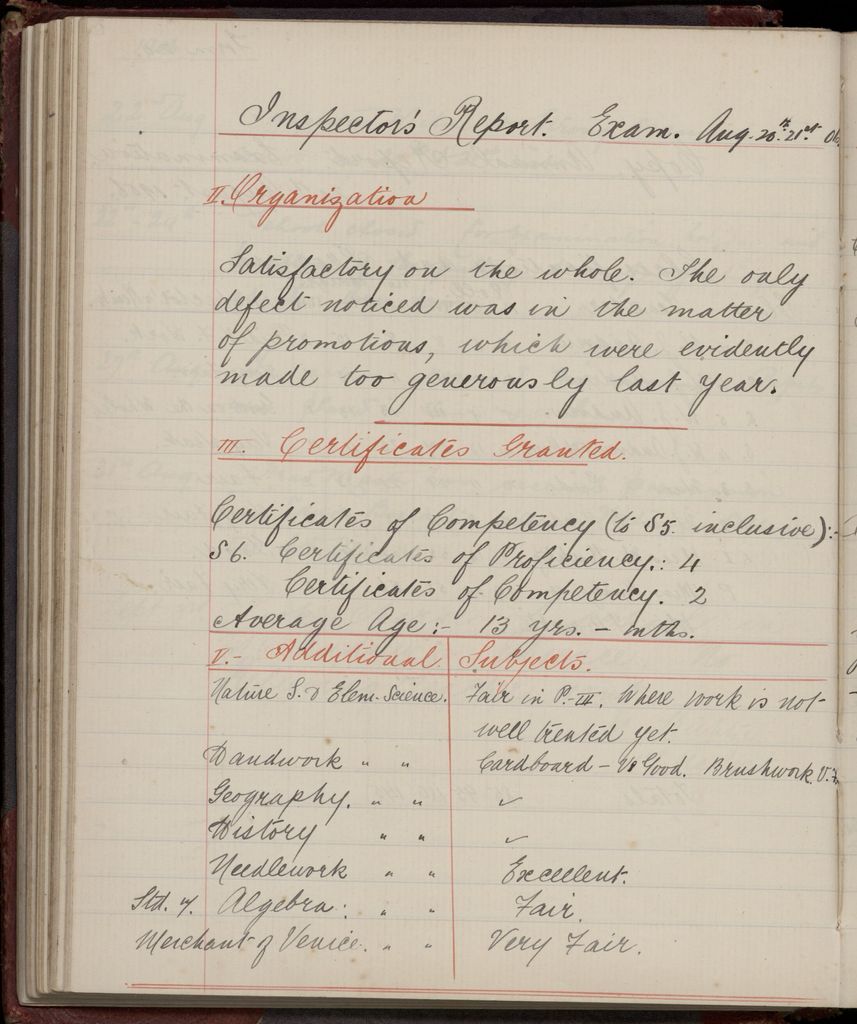 Inspector's Report. Exam. Aug. 20th. 21st. 06
II. Organization
Satisfactory on the whole. The only
defect noticed was in the matter
of promotions, which were evidently
made too generously last year.
III. Certificates Granted.
Certificates of Competency (to S5. inclusive):-
S6. Certificates of Proficiency.: 4
Certificates of Competency. 2
Average Age:- 13 yrs. - mths.
V.- Additional Subjects.
Nature S. & Elem. Science. Fair in P.-III. Where work is not
well treated yet.
Handwork " " Cardboard - V. Good. Brushwork. V.
Geography. " " ✓
History " " ✓
Needlework " " Excellent.
Std. 7. Algebra: " " Fair.
Merchant of Venice. " " Very Fair.